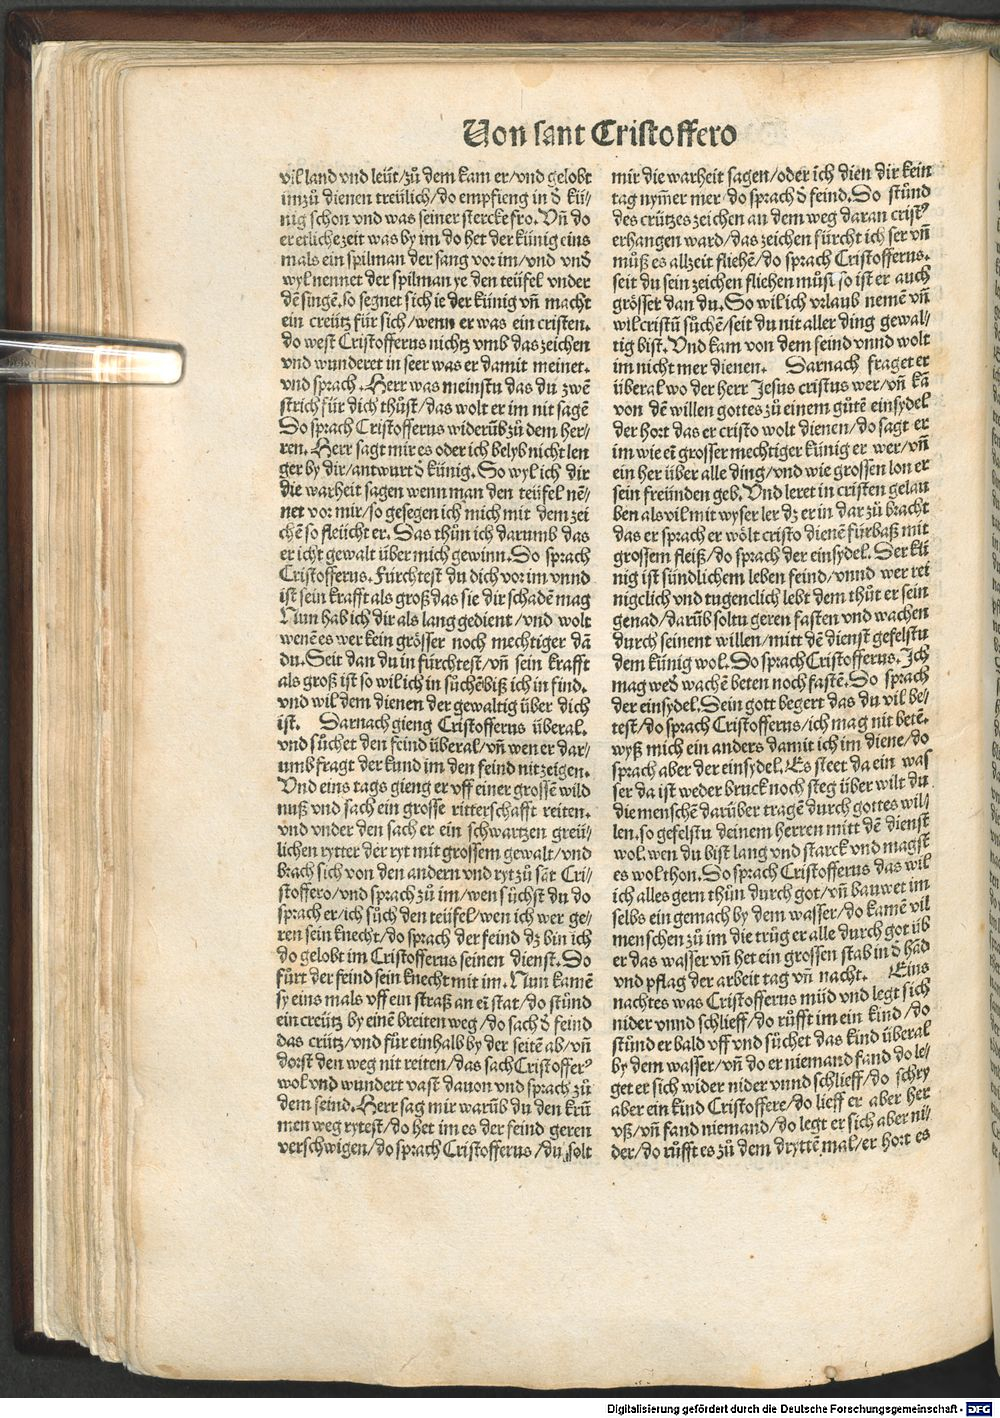 Von sant Cristoffero
vil land vnd leüt/zů dem kam er/vnd gelobt
imzů dienen treülich/do empfieng in d̕ kü⸗
nig schon vnd was seiner stercke fro. Vñ do
er etliche zeit was by im do het der künig eins
mals ein spilman der sang vor im/vnd vnd̕
wyl nennet der spilman ye den teüfel vnder
dē singē. so segnet sich ie der künig vñ macht
ein creütz für sich/wenn er was ein cristen.
do west Cristofferus nichtz vmb das zeichen
vnd wunderet in seer was er damit meinet.
vnd sprach. Herr was meinstu das du zwē
strich für dich thůst/das wolt er im nit sagē
Do sprach Cristofferus widerūb zů dem her⸗
ren. Herr sagt mir es oder ich belyb nicht len
ger by dir/antwurt d̕ künig. So wyl ich dir
die warheit sagen wenn man den teüfel nē⸗
net vor mir/so gesegen ich mich mit dem zei
chē so fleücht er. Das thůn ich darumb das
er icht gewalt über mich gewinn. Do sprach
Cristofferus. Fürchtest du dich vor im vnnd
ist sein krafft als groß das sie dir schadē mag
Nun hab ich dir als lang gedient/vnd wolt
wenē es wer kein grösser noch mechtiger dā
du. Seit dan du in fürchtest/vñ sein krafft
als groß ist so wil ich in sůchē biß ich in find.
vnd wil dem dienen der gewaltig über dich
ist. Darnach gieng Cristofferus überal.
vnd sůchet den feind überal/vñ wen er dar⸗
umb fragt der kund im den feind nit zeigen.
Vnd eins tags gieng er vff einer grossē wild
nuß vnd sach ein grosse ritterschafft reiten.
vnd vnder den sach er ein schwartzen greü⸗
lichen rytter der ryt mit grossem gewalt/vnd
brach sich von den andern vnd ryt zů sāt Cri⸗
stoffero/vnd sprach zů im/wen sůchst du do
sprach er/ich sůch den teüfel/wen ich wer ge⸗
ren sein knecht/do sprach der feind dz bin ich
do gelobt im Cristofferus seinen dienst. Do
fůrt der feind sein knecht mit im. Nun kamē
sy eins mals vff ein straß an eī stat/do stůnd
ein creütz by einē breiten weg/do sach d̕ feind
das crütz/vnd für einhalb by der seitē ab/vñ
dorst den weg nit reiten/das sach Cristofferꝰ
wol vnd wundert vast dauon vnd sprach zů
dem feind. Herr sag mir warūb du den krū
men weg rytest/do het im es der feind geren
verschwigen/do sprach Cristofferus/du solt
mir die warheit sagen/oder ich dien dir kein
tag nym̄er mer/do sprach d̕ feind. Do stůnd
des crützes zeichen an dem weg daran cristꝰ
erhangen ward/das zeichen fürcht ich ser vñ
můß es allzeit fliehē/do sprach Cristofferus.
seit du sein zeichen fliehen můst so ist er auch
grösser dan du. So wil ich vrlaub nemē vñ
wil cristū sůchē/seit du nit aller ding gewal⸗
tig bist. Vnd kam von dem feind vnnd wolt
im nicht mer dienen. Darnach fraget er
überal wo der herr Jesus cristus wer/vñ kā
von dē willen gottes zů einem gůtē einsydel
der hort das er cristo wolt dienen/do sagt er
im wie eī grosser mechtiger künig er wer/vñ
ein her über alle ding/vnd wie grossen lon er
sein freünden geb. Vnd leret in cristen gelau
ben als vil mit wyser ler dz er in dar zů bracht
das er sprach er wölt cristo dienē fürbaß mit
grossem fleiß/do sprach der einsydel. Der kü
nig ist sündlichem leben feind/vnnd wer rei
nigclich vnd tugenclich lebt dem thůt er sein
genad/darūb soltu geren fasten vnd wachen
durch seinent willen/mitt dē dienst gefelstu
dem künig wol. Do sprach Cristofferus. Ich
mag wed̕ wachē beten noch fastē. Do sprach
der einsydel. Dein gott begert das du vil be⸗
test/do sprach Cristofferus/ich mag nit betē.
wyß mich ein anders damit ich im diene/do
sprach aber der einsydel. Es steet da ein was
ser da ist weder bruck noch steg über wilt du
die menschē darüber tragē durch gottes wil⸗
len. so gefelstu deinem herren mitt dē dienst
wol. wen du bist lang vnd starck vnd magst
es wol thon. Do sprach Cristofferus das wil
ich alles gern thůn durch got/vñ bauwet im
selbs ein gemach by dem wasser/do kamē vil
menschen zů im die trůg er alle durch got üb
er das wasser vñ het ein grossen stab in d̕ hād
vnd pflag der arbeit tag vñ nacht. Eins
nachtes was Cristofferus müd vnd legt sich
nider vnnd schlieff/do růfft im ein kind/do
stůnd er bald vff vnd sůchet das kind überal
by dem wasser/vñ do er niemand fand do le⸗
get er sich wider nider vnnd schlieff/do schry
aber ein kind Cristoffere/do lieff er aber her
vß/vñ fand niemand/do legt er sich aber ni⸗
der/do růfft es zů dem dryttē mal/er hort es
Digitalisierung gefördert durch die Deutsche Forschungsgemeinschaft - DFG